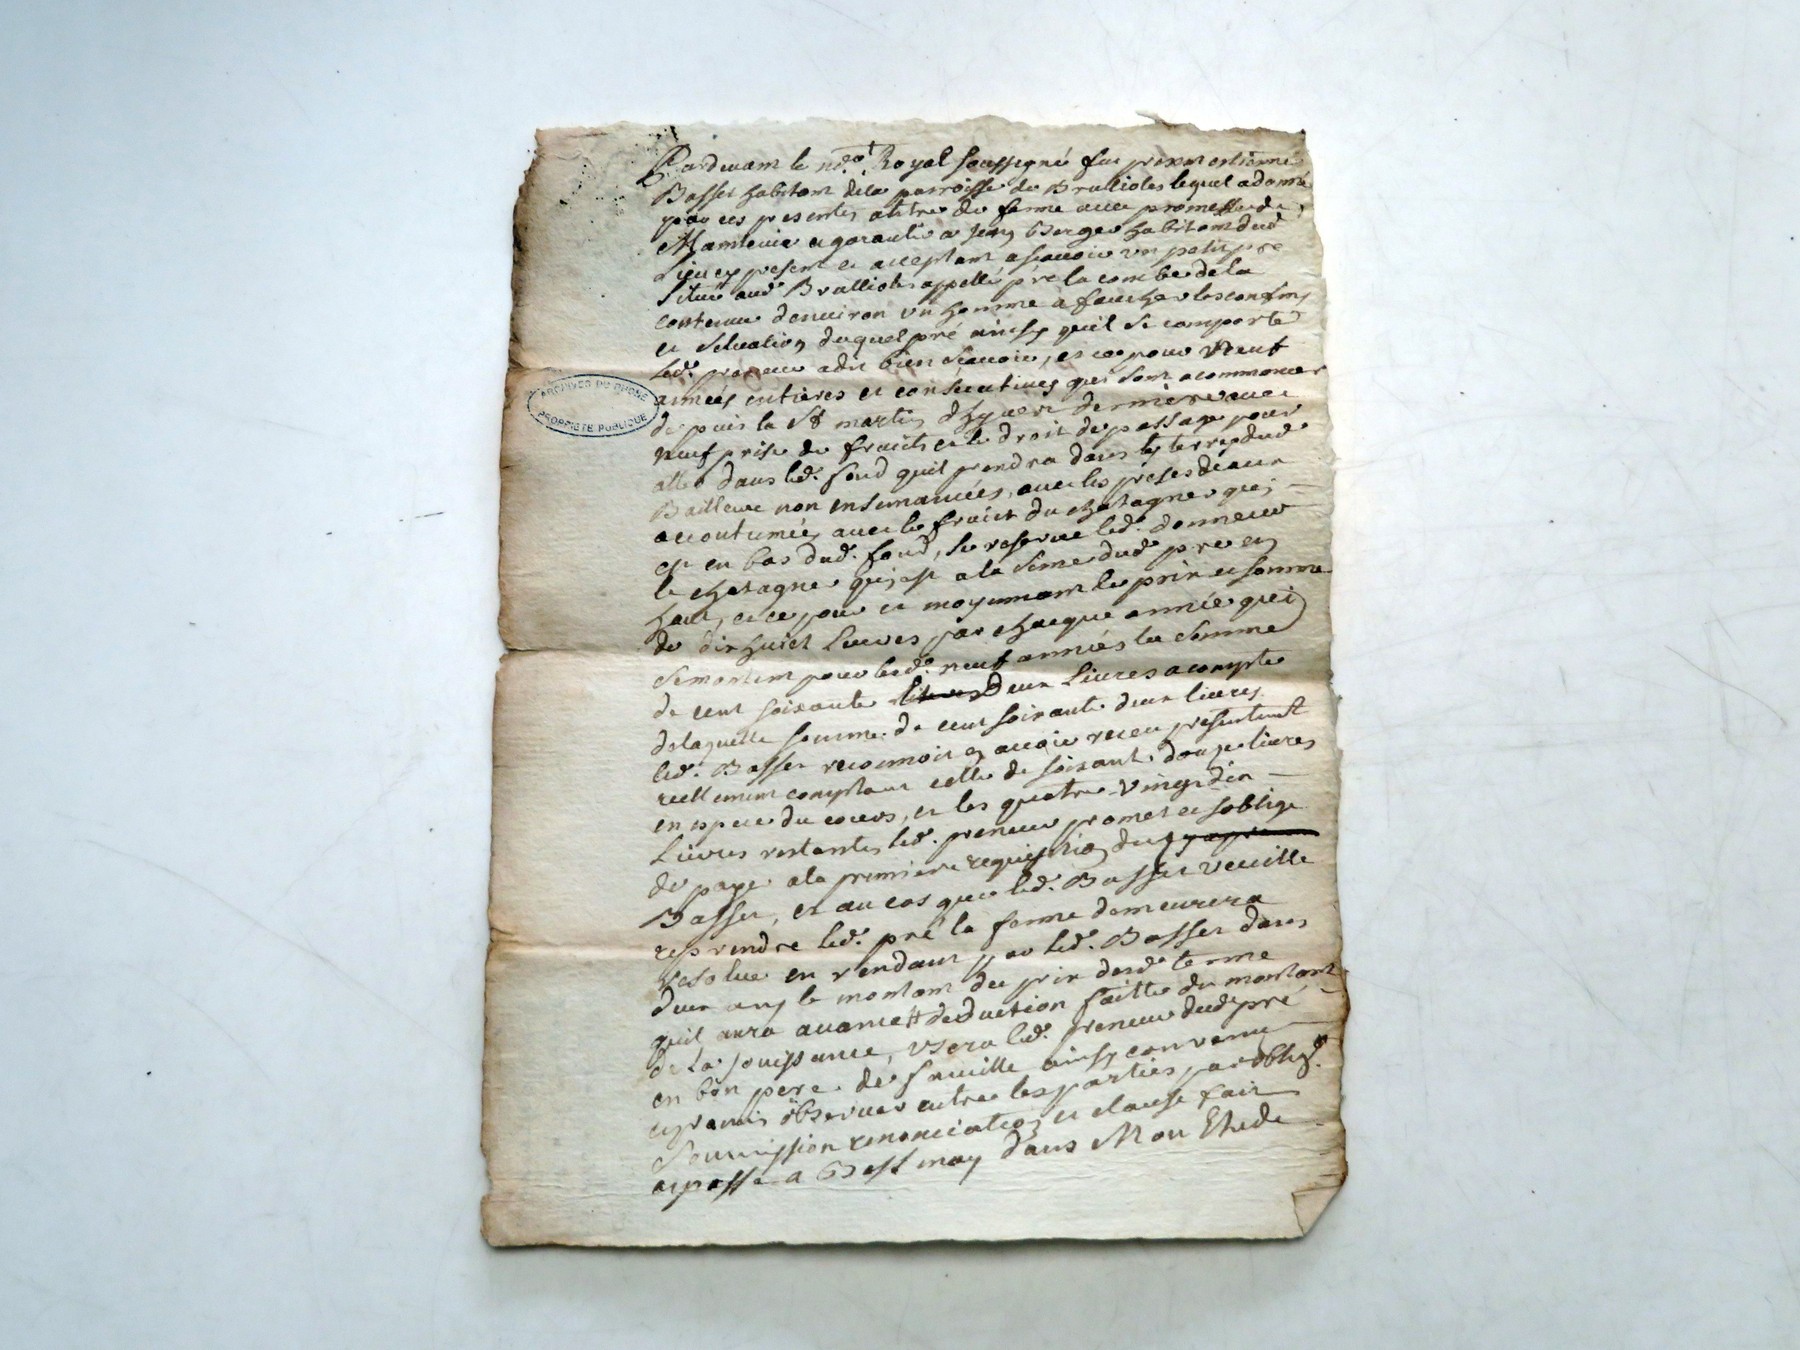 Pardevant le no.re Royal soussigné fut présent estienne
Basset habitant de la parroisse de Brullioles lequel a donné
par ces presentes a titre de ferme avec promesse de
Maintenir et garantir a jean Berger habitant dud
Lieu cy present et acceptant asscavoir un petit pré
situé aud. Brullioles appellé pré la combe de la
contenue denviron un homme à faucher les confins
et situation duquel pré ainsy quil se comporte
led. preneur a dit bien scavoir, et ce pour Neuf
années entieres et consecutives qui sont a commencer
depuis la St martin dhyvert derniere avec
neuf prise de fruits et le droit de passage pour
aller dans led. fond quil prendra dans les terres dud
Bailleur non ensemancées, avec les prises deaux
accoutumées avec le fruict du chatagner qui
est en bas dud. fond, se reserve led. donneur
le chatagner qui est a la sime dud pré en
haut, et ce pour et moyennant le prix et somme
de dix huict Livres par chaque année qui
se montent pour lesd. neuf années la somme
de cent soixante livres Deux Livres a compte
delaquelle somme de cent soixante deux livres
led. Basset reconnoit en avoir receu presentement
reellement comptant celle de soixante douze livres
en espece du cours, et les quatre-vingt dix
Livres restantes led. preneur promet et soblige
de payer a la premiere requisition du
Basset, et au cas que led. Basset veuille
reprendre led. pré la ferme demeurera
resolue en rendant par led. Basset dans
dun an le montant du prix desd. ferme
quil aura avancé deduction faitte du montant
de La jouissance, usera led. preneur dud pré
en bon pere de famille ainsy convenu
et promis observer entre les parties par oblig.
soumission renonciation et clause fait
et passé a Bessenay dans Mon Etude
ARCHIVES DU RHONE
PROPRIÉTÉ PUBLIQUE